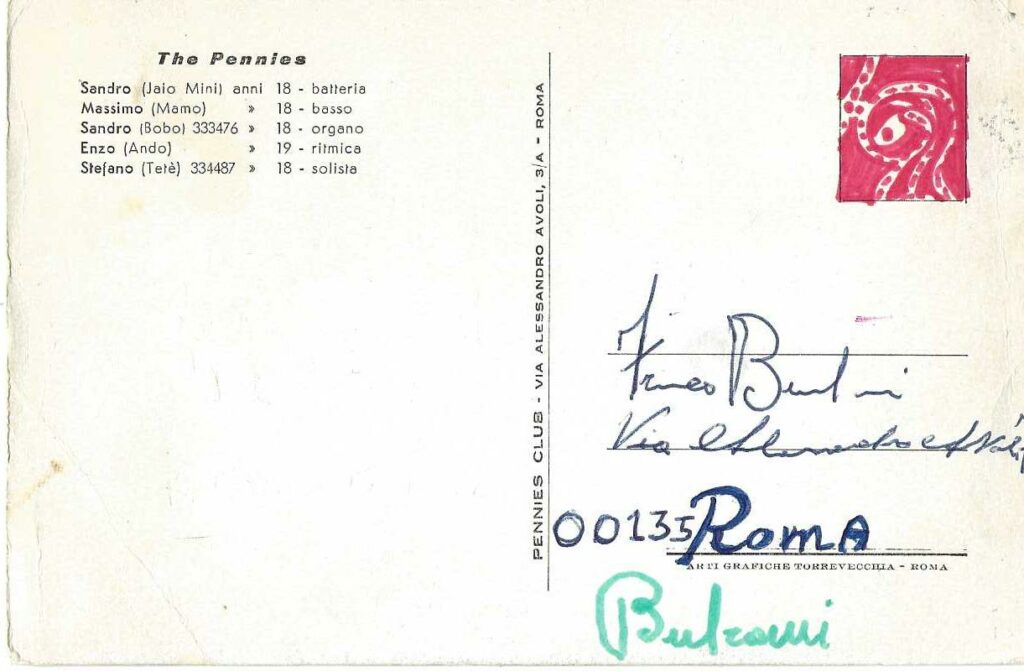 The Pennies
Sandro (Jaio Mini) anni 18 - batteria
Massimo (Mamo) » 18 - basso
Sandro (Bobo) 333476 » 18 - organo
Enzo (Ando) » 19 - ritmica
Stefano (Tetè) 334487 » 18 - solista
PENNIES CLUB - VIA ALESSANDRO AVOLI, 3/A - ROMA
Via
00135 Roma
ARTI GRAFICHE TORREVECCHIA - ROMA